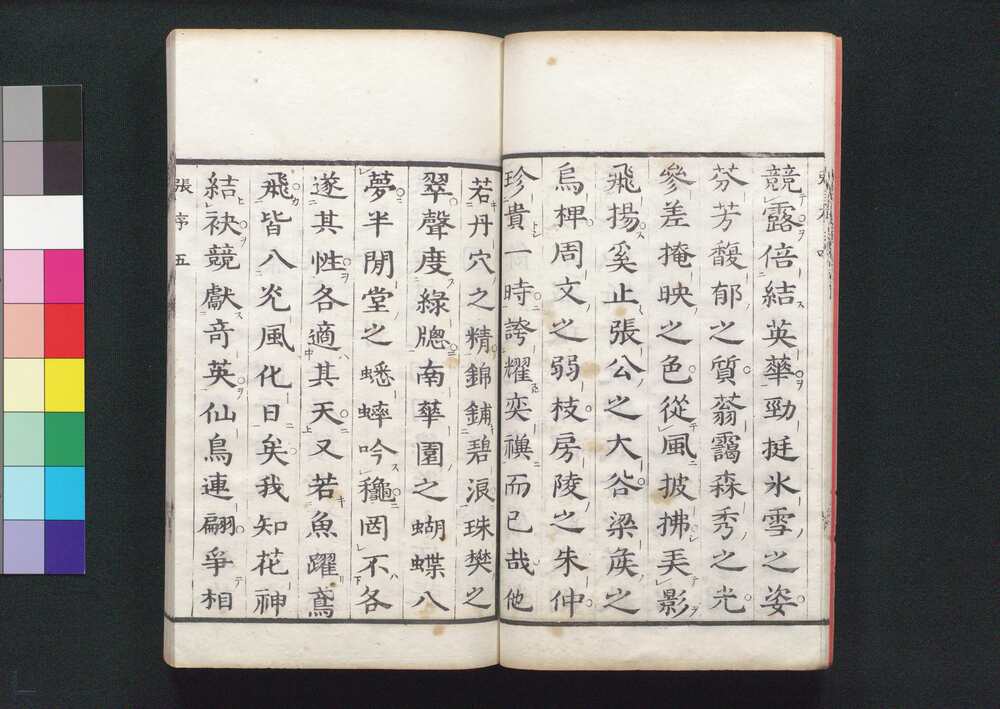 競露倍結英華勁挺氷雪之姿
芬芳馥郁之質蓊靄森秀之光
參差掩映之色從風披拂美影
飛揚奚止張公之大谷梁矦之
烏椑周文之弱枝房陵之朱仲
珍貴一時誇耀奕禩而已哉他
若丹穴之精錦鋪碧浪珠樊之
翠聲度綠牕南華園之蝴蝶八
夢半閒堂之蟋蟀吟龝罔不各
遂其性各適其天又若魚躍鳶
飛皆八光風化日矣我知花神
結袂競獻奇英仙鳥連翩爭相
張序 五